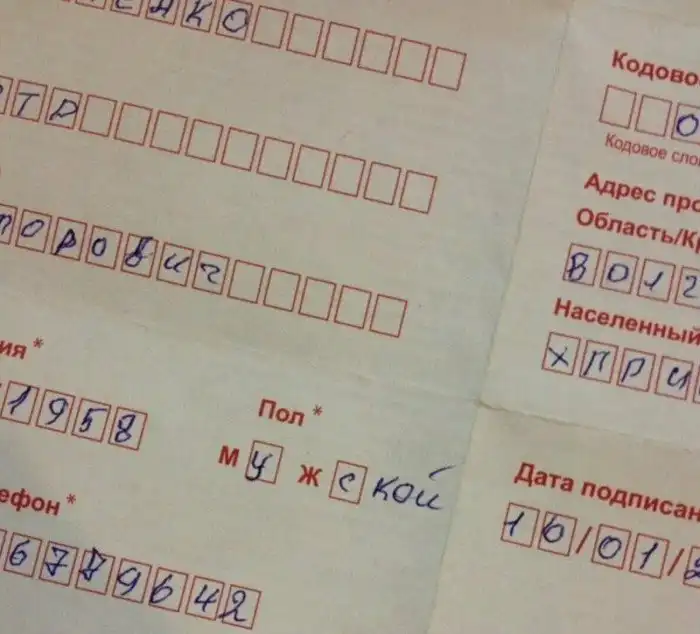 ЕНКО
ТР
ТОРОВИЧ
ия *
1958
Пол *
М У Ж С КОЙ
ефон *
6779642
Кодово
О
Кодовое сло
Адрес про
Область/К
ВОЛГ
Населенный
ХПРИ
Дата подписан
16/01/2